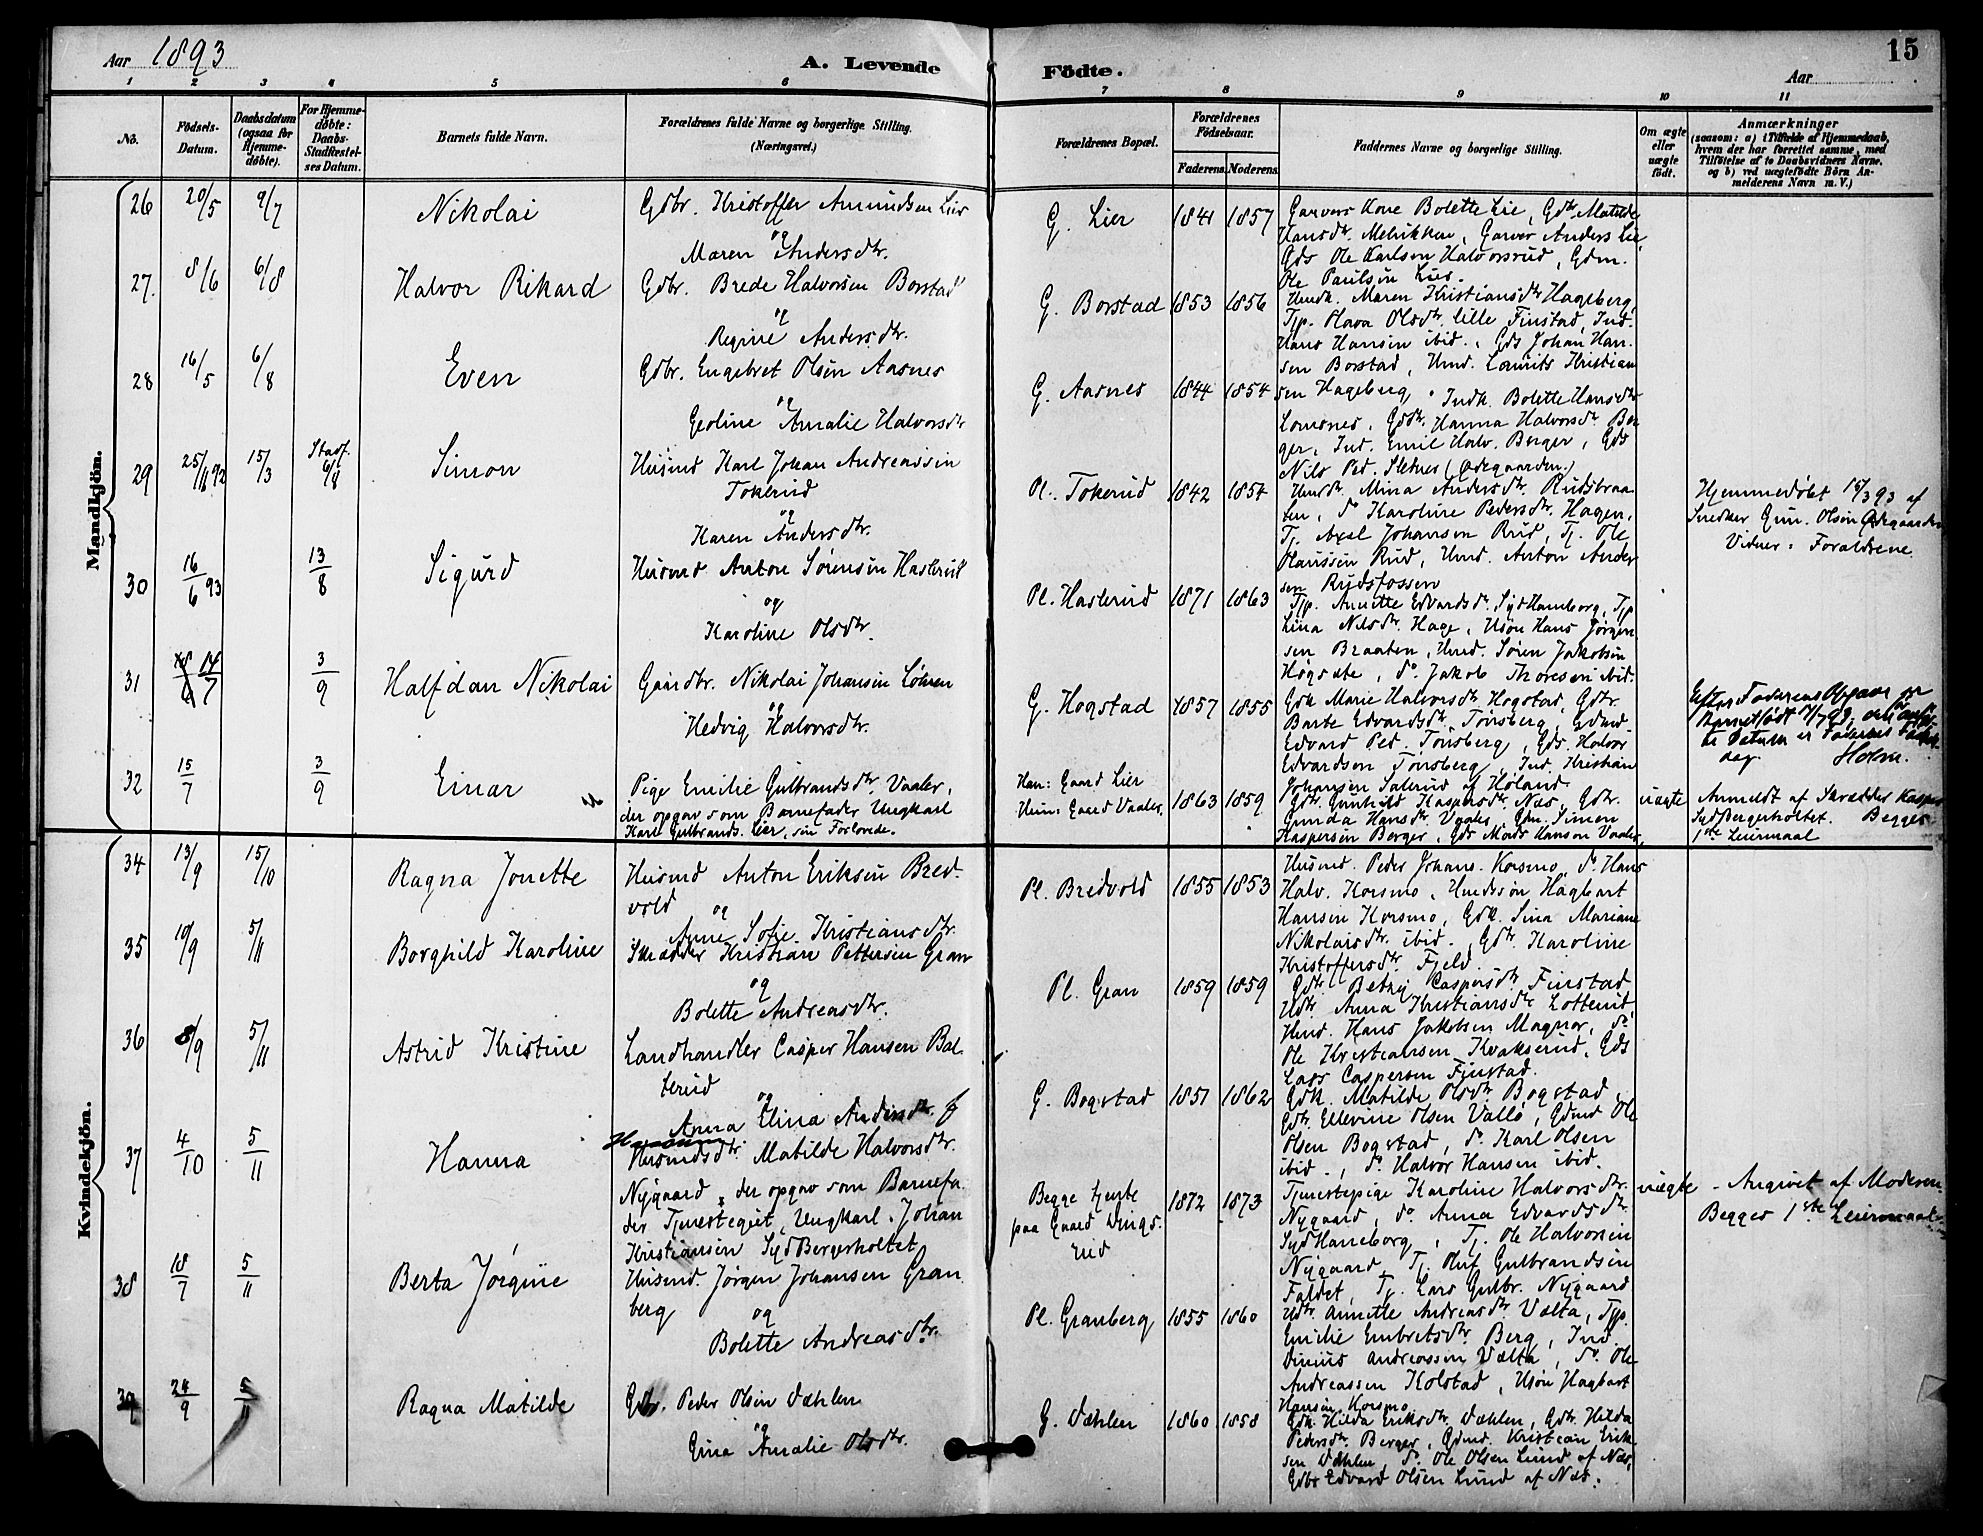 Aar 1893
A. Levende Födte.
Aar
15
1 2 3 4 5 6 7 8 9 10 11
No.
Födsels-Datum.
Daabsdatum (ogsaa for Hjemme-döbte).
For Hjemme-döbte: Daabs-Stadfæstel-ses Datum.
Barnets fulde Navn.
Forældrenes fulde Navne og borgerlige Stilling.
(Næringsvei.)
Forældrenes Bopæl.
Forældrenes Födselsaar.
Faderens. Moderens.
Faddernes Navne og borgerlige Stilling.
Om ægte eller uægte födt.
Anmærkninger
(saasom: a) i Tilfælde af Hjemmedaab,
hvem der har forrettet samme, med
Tilföielse af to Daabsvidners Navne,
og b) ved uægtefödte Börn An-
melderens Navn m. V.)
Mandkjön.
26 20/5 9/7 Nikolai
Gdbr. Kristoffer Amundsen Lier
og
Maren Andersdtr.
G. Lier 1841 1857
Garvers Kone Bolette Lie, Gdtr. Matilde
Hansdtr. Melnikken, Garver Anders Lie,
Gds Ole Karlsen Halvorsrud, Gdm.
Ole Paulsen Lier.
27. 8/6 6/8 Halvor Rikard
Gdbr. Brede Halvorsen Borstad
og
Regine Andersdtr.
G. Borstad 1853 1856
Hmdk. Maren Kristiansdtr Hageberg,
Tjp. Olava Olsdtr. lille Finstad, Ind.
Hans Hansen ibid., Gds Johan Han-
sen Borstad, Hmd. Laurits Kristian
sen Hageberg
28 16/5 6/8 Even
Gdbr. Engebret Olsen Aasnes
og
Geoline Amalie Halvorsdtr
G. Aasnes 1844 1854
Indk. Bolette Hansdtr
Lomsnes, Gdtr. Hanna Halvorsdtr Ber
ger, Ind. Emil Halv. Berger, Gds
Nils Ped. Sletnes (Ødegaarden.)
29 25/11 92 15/3 Stadf. 6/8 Simon
Husmd Karl Johan Andreassen
Tokerud
og
Karen Andersdtr.
Pl. Tokerud 1842 1854
Hmdtr. Mina Andersdtr. Rudsbraa
ten, do Karoline Pedersdtr. Hagen,
Tj. Axel Johansen Rud, Tj. Ole
Olaussen Rud, Hmd. Anton Ander
sen Rudsfossen
Hjemmedøbt 15/3 93 af
Snedker Gun. Olsen Ødegaarden
Vidner: Forældrene.
30 16/6 93 13/8 Sigurd
Husmd Anton Sørensen Haslerud
og
Karoline Olsdtr.
Pl. Haslerud 1871 1863
Tjp. Annette Edvardsdtr. Syd Haneborg, Tjp
Lina Nilsdtr. Hage, Hsøn Hans Jørgen
sen Braaten, Hmd. Søren Jakobsen
Høgsæte, do. Jakob Thoresen ibid.
31 14/7 3/9 Halfdan Nikolai
Gaardbr. Nikolai Johansen Løhren
og
Hedvig Halvorsdtr.
G. Hogstad 1857 1855
Gdk Marie Halvorsdtr. Hogstad, Gdtr.
Berte Edvardsdtr. Tønsberg, Gdmd
Edvard Ped. Tønsberg, Gds. Halvor
Edvardsen Tønsberg, Ind. Kristian
Johansen Salerud af Høland.
Efter Faderens Opgave er
Barnet født 14/7 93;
Datum er Faderens Fødsels
dag. Holm.
32 15/7 3/9 Einar
Pige Emilie Gulbrandsdtr. Vaaler,
der opgav som Barnefader Ungkarl
Karl Gulbrands. Lier, sin Forlovede.
Han: Gaard Lier
Hun: Gaard Vaaler 1863 1859
Gdtr. Gunhild Kaspersdtr. Næs, Gdtr.
Gunda Hansdtr. Vaaler, Gdm. Simen
Kaspersen Berger, Gds Mads Hansen Vaaler,
uægte
Anmeldt af Skrædder Kasper
Syd Bergerholtet. Begges
1ste Leiermaal
Kvindekjön.
34 13/9 15/10 Ragna Jonette
Husmd Anton Eriksen Bred-
vold
og
Anne Sofie Kristiansdtr.
Pl. Bredvold 1855 1853
Husmd. Peder Johans. Korsmo, do Hans
Halv. Korsmo, Hmdssøn Hagbart
Hansen Korsmo, Gdk. Lina Mariane
Nikolaisdtr. ibid., Gdtr. Karoline
Kristoffersdtr. Fjeld
35 10/9 5/11 Borghild Karoline
Skrædder Kristian Pettersen Gran
og
Bolette Andreasdtr.
Pl. Gran 1859 1859
Gdtr. Bethy Caspersdtr Finstad
Hdtr. Anna Kristiansdtr Lotterud,
Hmd. Hans Jakobsen Magnor, do
Ole Kristiansen Kvakserud, Gds
Lars Caspersen Finstad.
36 8/9 5/11 Astrid Kristine
Landhandler Casper Hansen Bal-
terud
og
Anna Elina Andersdtr.
G. Bogstad 1857 1862
Gdk. Matilde Olsdtr Bogstad,
Gdtr. Ellevine Olsen Vallø, Gdmd Ole
Olsen Bogstad, do. Karl Olsen
ibid., do. Halvor Hansen ibid.
37 4/10 5/11 Hanna
Husmdsdtr. Matilde Halvorsdtr.
Nygaard, der opgav som Barnefa-
der Tjenestegut, Ungkarl Johan
Kristiansen Syd Bergerholtet
Begge tjente
paa Gaard Dings-
rud 1872 1873
Tjenestepige Karoline Halvorsdtr.
Nygaard, do. Anna Edvardsdtr.
Syd Haneborg, Tj. Ole Halvorsen
Nygaard, Tj. Oluf Gulbrandsen
Faldet, Tj. Lars Gulbr. Nygaard
uægte
Angivet af Moderen.
Begges 1ste Leiermaal.
38 18/7 5/11 Berta Jørgine
Husmd. Jørgen Johansen Gran
berg
og
Bolette Andreasdtr.
Pl. Granberg 1855 1860
Hdtr. Annette Andreasdtr Vælta, Tjp.
Emilie Embretsdtr. Berg, Ind.
Andreassen Vælta, do. Ole
Andreassen Kolstad, Hsøn Hagbart
Hansen Korsmo
39 24/9 5/11 Ragna Matilde
Gdbr. Peder Olsen Dæhlen
og
Gina Amalie Olsdtr.
G. Dæhlen 1860 1858
Gdk. Hilda Eriksdtr. Dæhlen, Gdtr. Hilda
Pedersdtr. Berger, Gdmd. Kristian Erik
sen Dæhlen, do. Ole Olsen Lund af Næs,
Gdbr Edvard Olsen Lund af Næs.